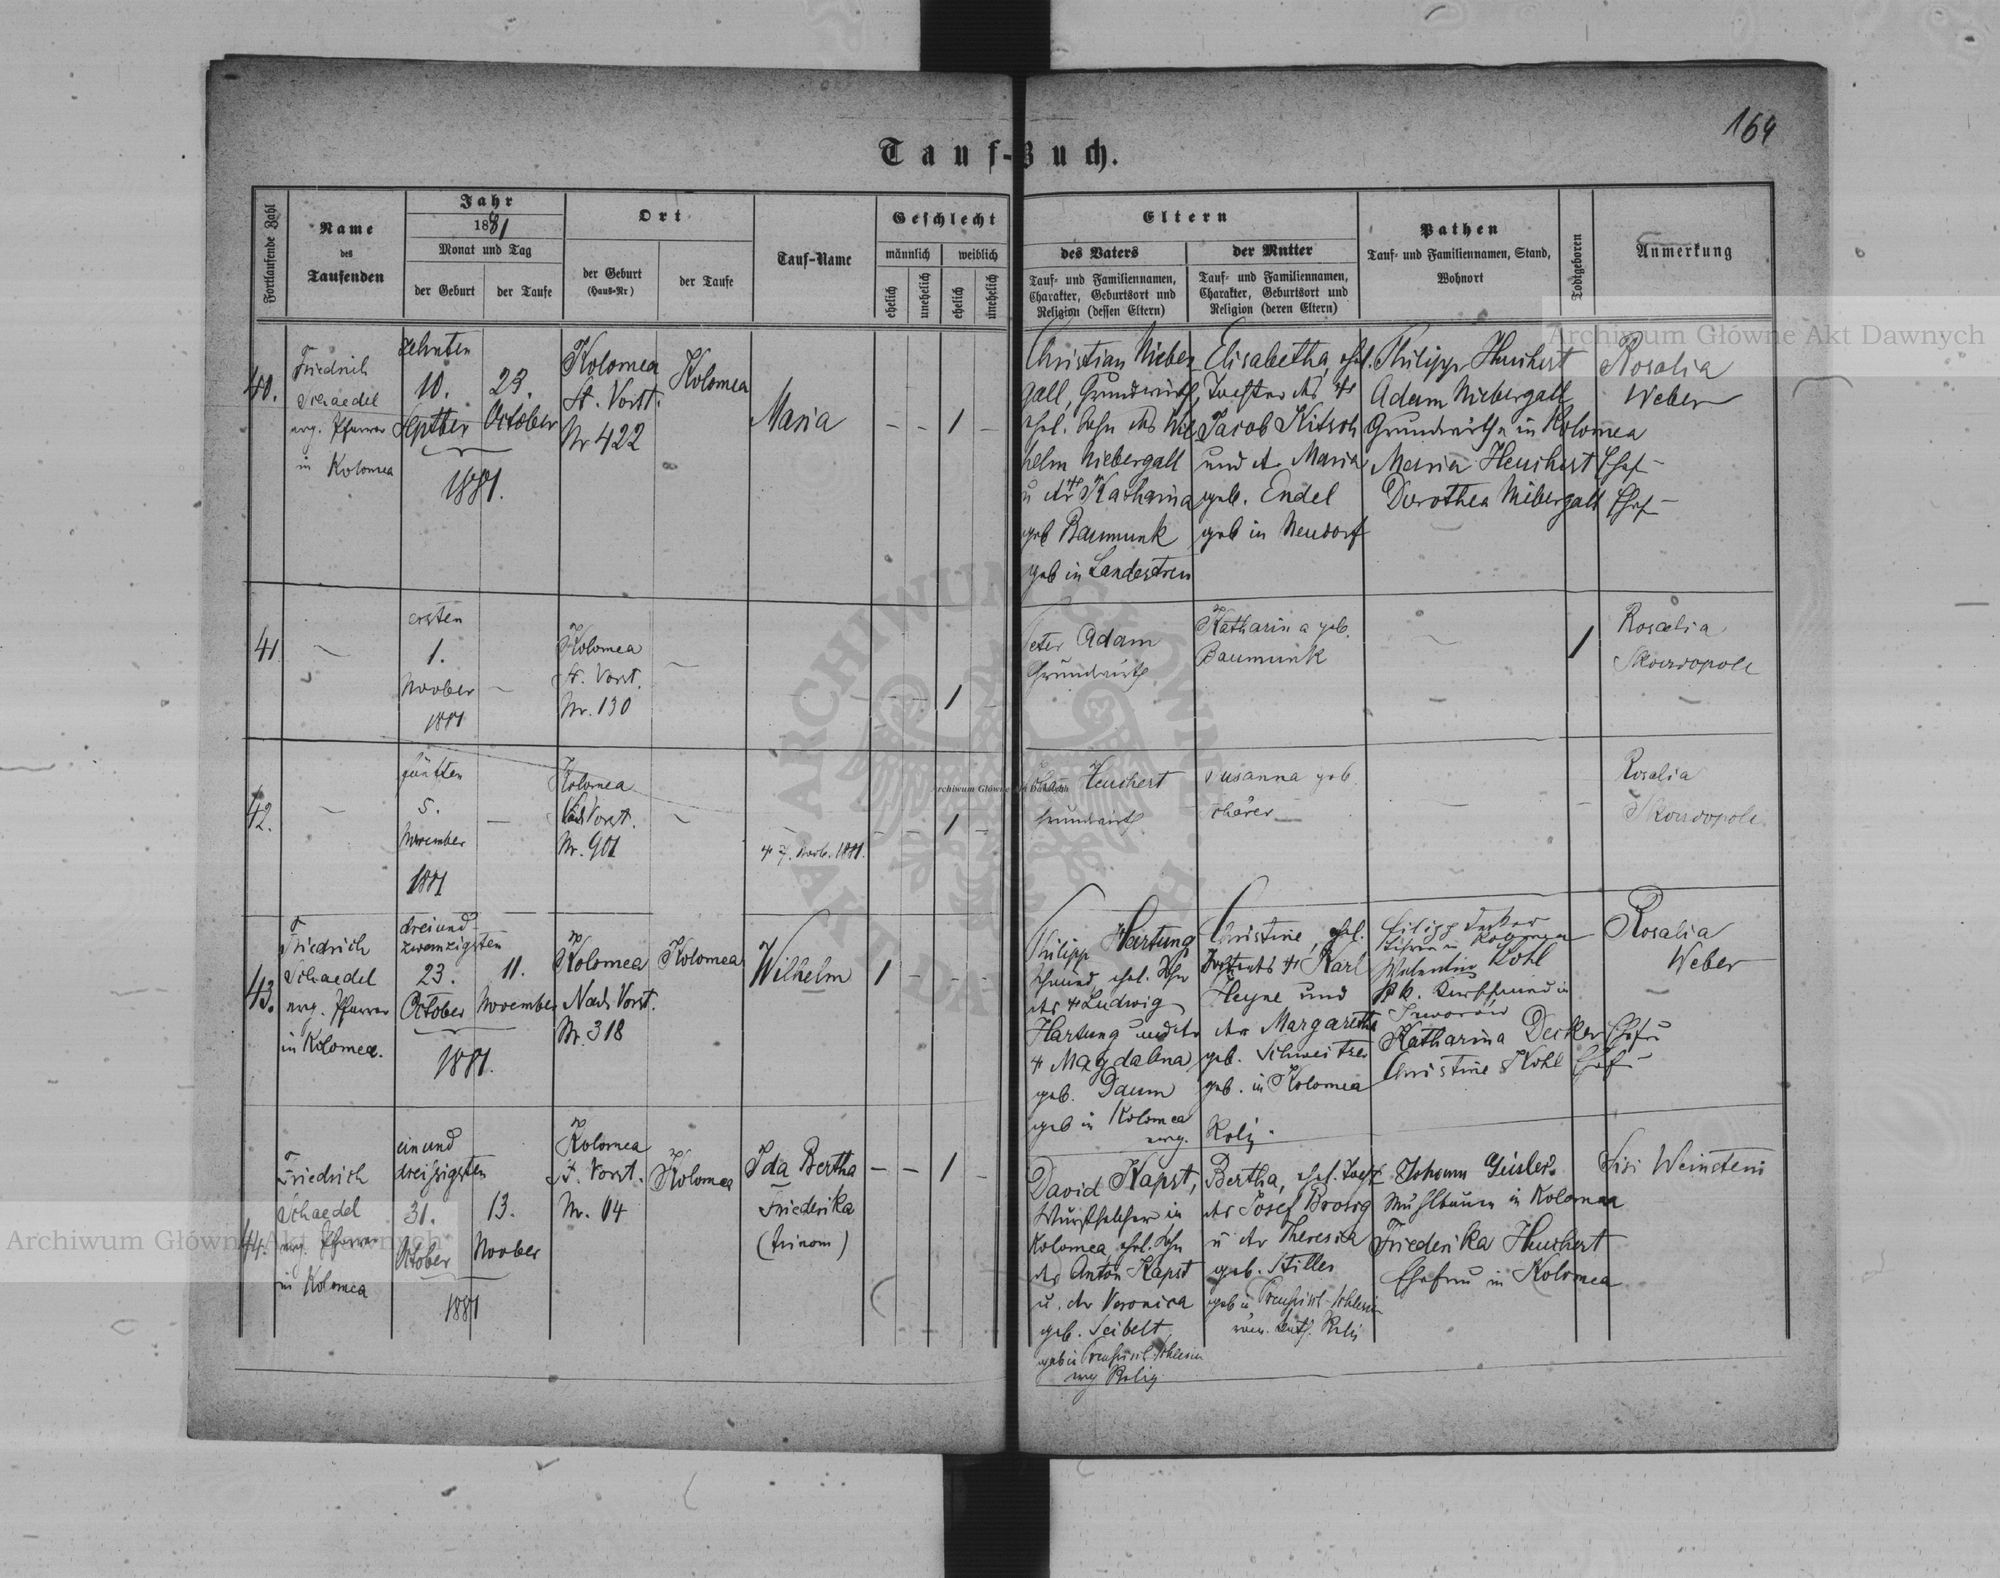 164
Tauf-Buch.
Fortlaufende Zahl
Name
des
Taufenden
Jahr
1881
Monat und Tag
der Geburt
der Taufe
Ort
der Geburt
(Haus-Nr)
der Taufe
Tauf-Name
Geschlecht
männlich
weiblich
ehelich
unehelich
ehelich
unehelich
Eltern
des Vaters
Tauf- und Familiennamen,
Charakter, Geburtsort und
Religion (dessen Eltern)
der Mutter
Tauf- und Familiennamen,
Charakter, Geburtsort und
Religion (deren Eltern)
Pathen
Tauf- und Familiennamen, Stand,
Wohnort
Todtgeboren
Anmerkung
40.
Friedrich
Schaedel
evg. Pfarrer
in Kolomea
zehnten
10.
Septber
1881.
23.
October
Kolomea
St. Vorst.
Nr 422
Kolomea
Maria
- - 1 -
Christian Nieber
gall, Grundwirth,
ehel. Sohn des Wil
helm Niebergall
u der Katharina
geb Baumunk
geb in Landestreu
Elisabetha, ehel.
Tochter des
Jacob Kitsch
und der Maria
geb. Endel
geb in Neudorf
Philipp Heuchert
Adam Niebergall
Grundwirthe in Kolomea
Maria Heuchert Ehef-
Dorothea Niebergall Ehef-
Rosalia
Weber
41
ersten
1.
Novber
1881
Kolomea
St. Vorst.
Nr. 130
- - 1 -
Peter Adam
Grundwirth
Katharina geb.
Baumunk
1
Rosalia
42.
fünften
5.
November
1881
Kolomea
Vorst.
Nr. 901
7. Novb. 1881.
- - 1 -
Heuchert
Grundwirth
Susanna geb
Rosalia
43.
Friedrich
Schaedel
evg. Pfarrer
in Kolomea.
dreiund
zwanzigsten
23.
October
1881.
11.
November
Kolomea
Nad. Vorst.
Nr. 318
Kolomea
Wilhelm
1 - - -
Philipp Hartung
Schmied, ehel. Sohn
des Ludwig
Hartung und der
Magdalena
geb. Daum
geb in Kolomea
evg. Relig.
Christine, ehel.
Karl
Heyne und
der Margaretha
geb. Schweitzer
geb. in Kolomea
Valentin Kohl
in
Jworów
Katharina Decker Ehefru
Christine Kohl Ehef-
Rosalia
Weber
44.
Friedrich
Schaedel
evg. Pfarrer
in Kolomea
einund
dreißigsten
31.
October
1881
13.
Novber
Kolomea
St. Vorst.
Nr. 64
Kolomea
Ida Bertha
Friederika
(trinom)
- - 1 -
David Kapst,
in
Kolomea, ehel. Sohn
des Anton Kapst
u. der Veronica
geb. Seibelt,
geb in Preussisch Schlesien
evg Relig.
Bertha, ehel. Tocht
des Josef Brosig
u der Theresia
geb. Stiller
geb in Preussisch-Schlesien
röm. kath. Relig
Johann
in Kolomea
Friederika Heuchert
Ehefrau in Kolomea
Archiwum Główne Akt Dawnych
Archiwum Główne Akt Dawnych
Archiwum Główne Akt Dawnych